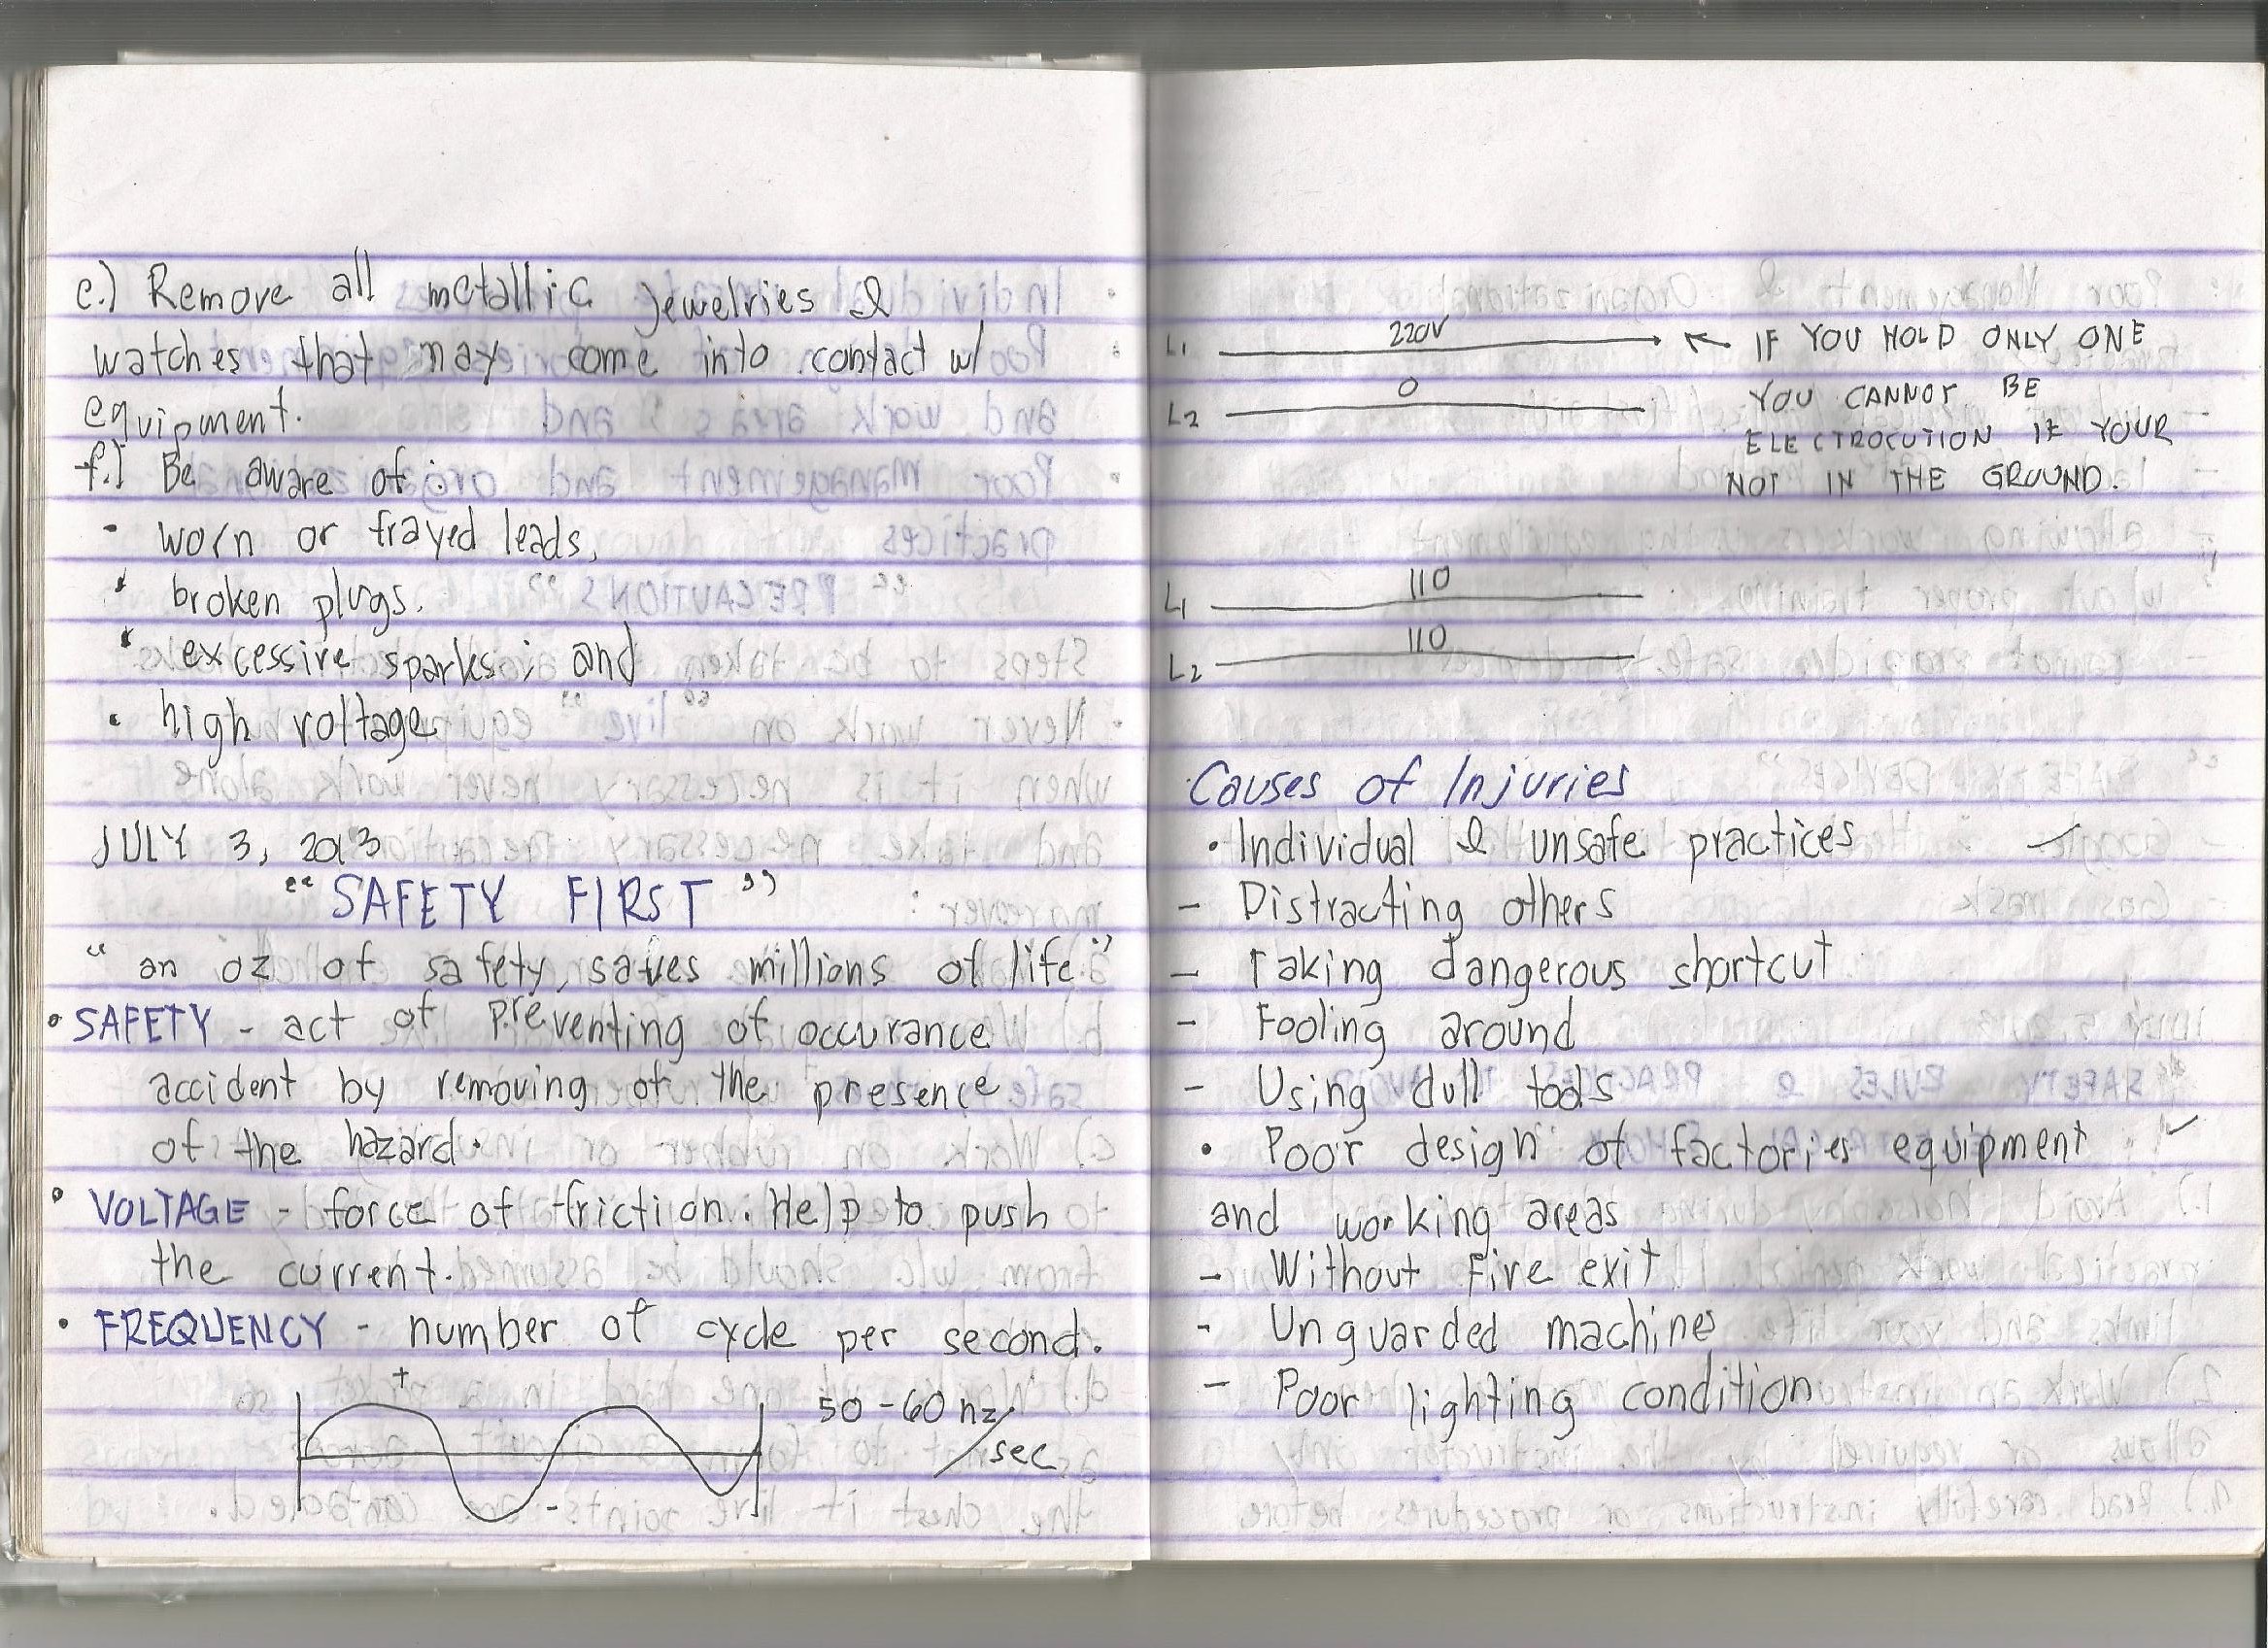 e.) Remove all metallic jewelries &
watches that may come into contact w/
equipment.
f.) Be aware of :
• worn or frayed leads,
• broken plugs.
• excessive sparks; and
• high voltage
JULY 3, 2013
“ SAFETY FIRST ”
“ an oz of safety, saves millions of life ”
• SAFETY - act of preventing of occurance
accident by removing of the presence
of the hazard.
• VOLTAGE - force of friction. Help to push
the current.
• FREQUENCY - number of cycle per second.
+
50 - 60 hz/sec
-
L1 220V
IF YOU HOLD ONLY ONE
L2 0
YOU CANNOT BE
ELECTROCUTION IF YOUR
NOT IN THE GROUND.
L1 110
L2 110
Causes of Injuries
• Individual & unsafe practices
- Distracting others
- Taking dangerous shortcut
- Fooling around
- Using dull tools
• Poor design of factories equipment
and working areas
- Without Fire exit
- Unguarded machines
- Poor lighting condition